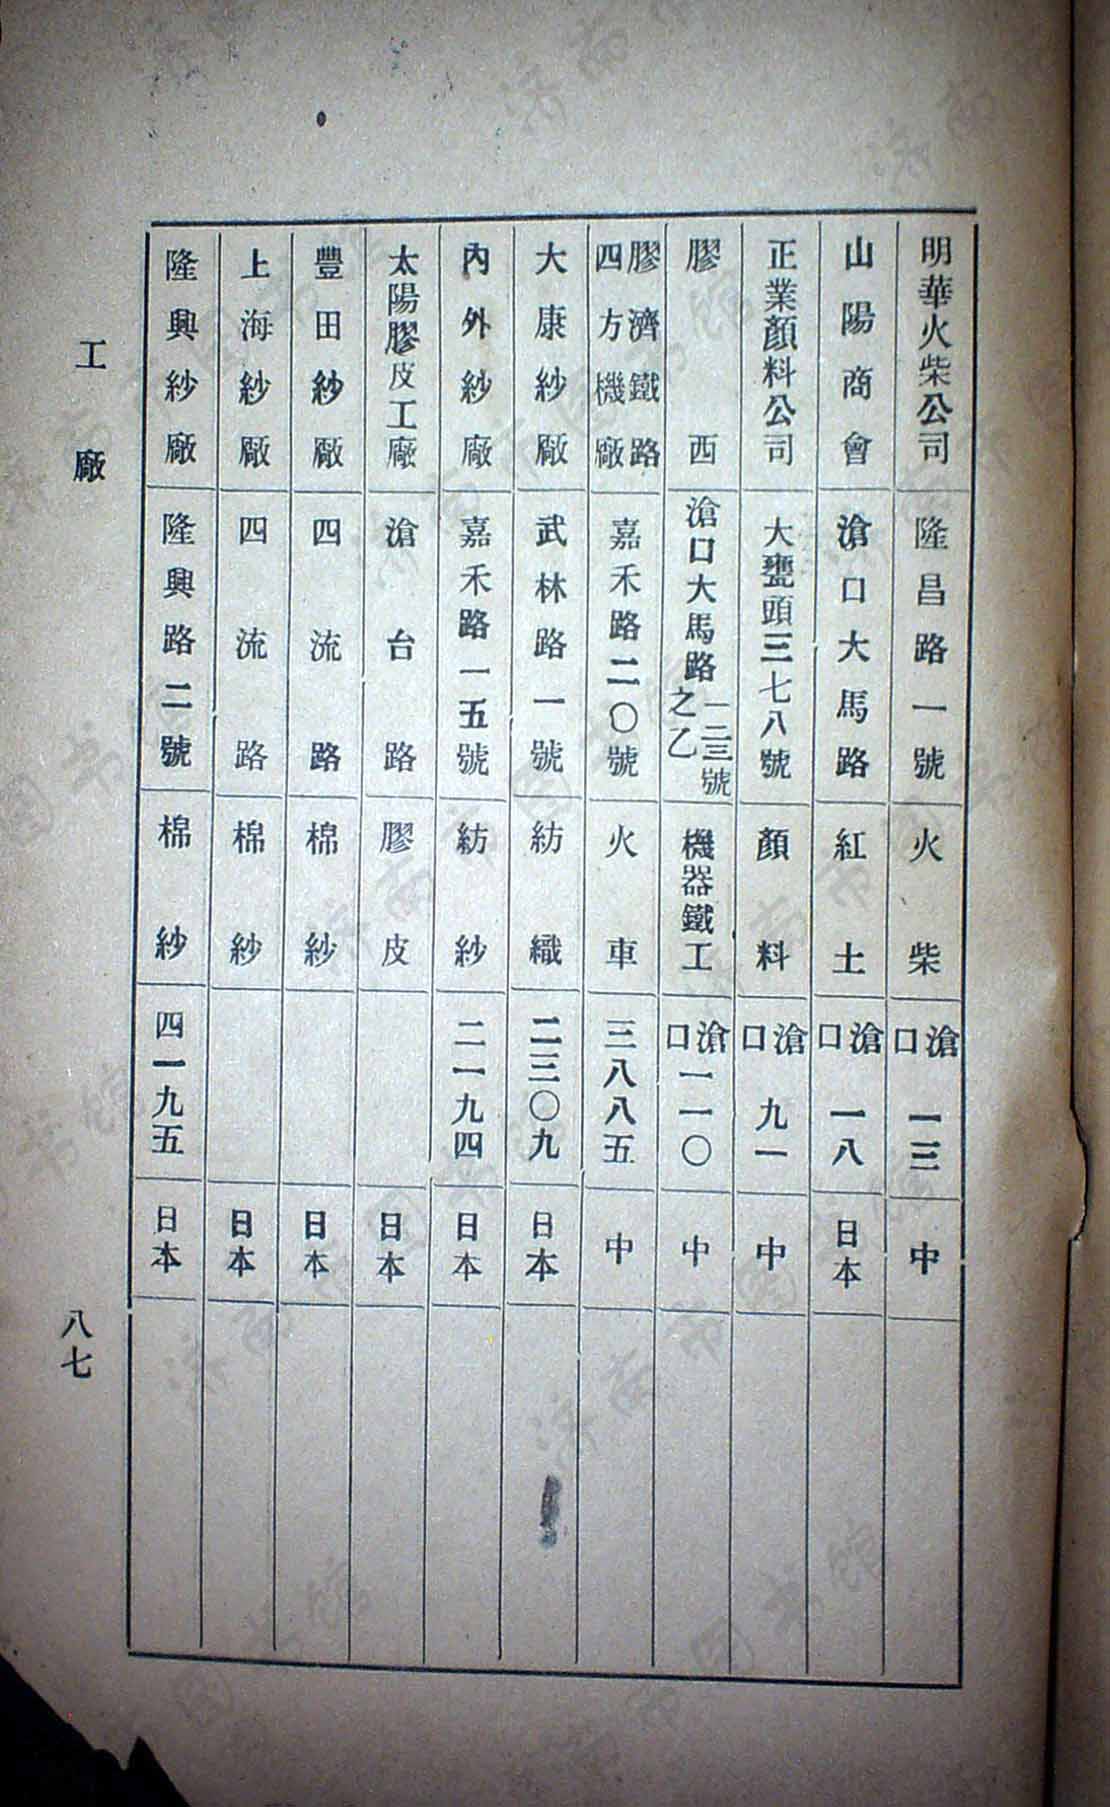 明華火柴公司 隆昌路一號 火柴 滄口 一三 中
山陽商會 滄口大馬路 紅土 滄口 一八 日本
正業顏料公司 大甕頭三七八號 顏料 滄口 九一 中
膠西 滄口大馬路一二三號之乙 機器鐵工 滄口一一〇 中
膠濟鐵路四方機廠 嘉禾路二〇號 火車 三八八五 中
大康紗廠 武林路一號 紡織 二三〇九 日本
內外紗廠 嘉禾路一五號 紡紗 二一九四 日本
太陽膠皮工廠 滄台路 膠皮 日本
豐田紗廠 四流路 棉紗 日本
上海紗廠 四流路 棉紗 日本
隆興紗廠 隆興路二號 棉紗 四一九五 日本
工廠
八七